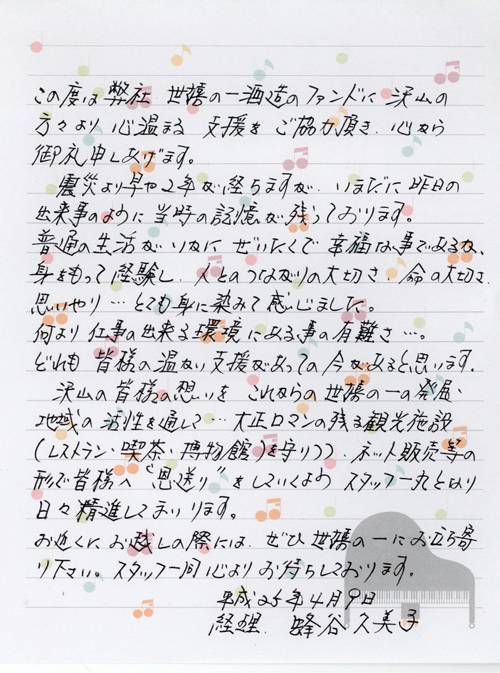 この度は弊社 世嬉の一酒造のファンドに沢山の
方々より心温まる 支援をご協力頂き、心から
御礼申しあげます。
震災より早や2年が経ちますが、いまだに昨日の
出来事のように当時の記憶が残っております。
普通の生活がいかに ぜいたくで 幸福な事であるか、
身をもって経験し、人とのつながりの大切さ、命の大切さ
思いやり…とても身に染みて感じました。
何より仕事の出来る環境にある事の有難さ…。
どれも 皆様の温かい支援があっての今があると思います。
沢山の皆様の想いを これからの世嬉の一の発展・
地域の活性を通して…大正ロマンの残る観光施設
(レストラン・喫茶・博物館)を守りつつ、ネット販売等の
形で皆様へ“恩送り”をしていくよう スタッフ一丸となり
日々精進してまいります。
お近くに お越しの際には、ぜひ 世嬉の一にお立ち寄
り下さい。スタッフ一同心よりお待ちしております。
平成25年4月9日
経理 蜂谷久美子